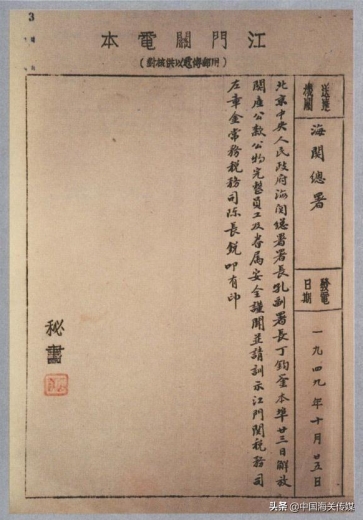 3
江門關電本
(用郵傳遞以供核對)
送達機關
海關總署
發電日期
一九四九年十月廿五日
北京中央人民政府海関總署署長孔副署長丁鈞鑒本埠廿三日解放
関產公款公物完整員工及眷属安全謹聞並請訓示江門関稅務司
左章金常務稅務司陳長銳叩有印
秘書
头条 @中国海关传媒